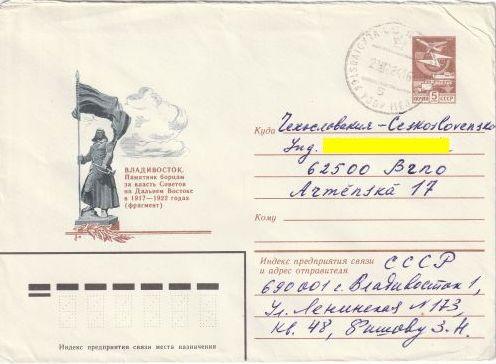 ПОЧТА 5 СССР
Куда Чехословакия-Československo
Ing.
62500 Brno
Arménská 17
ВЛАДИВОСТОК.
Памятник борцам
за власть Советов
на Дальнем Востоке
в 1917—1922 годах
(фрагмент)
Кому
Индекс предприятия связи
и адрес отправителя
СССР
690001 г. Владивосток 1,
Ул. Ленинская N 173,
Кв. 48, Фишову З. Н.
Индекс предприятия связи места назначения